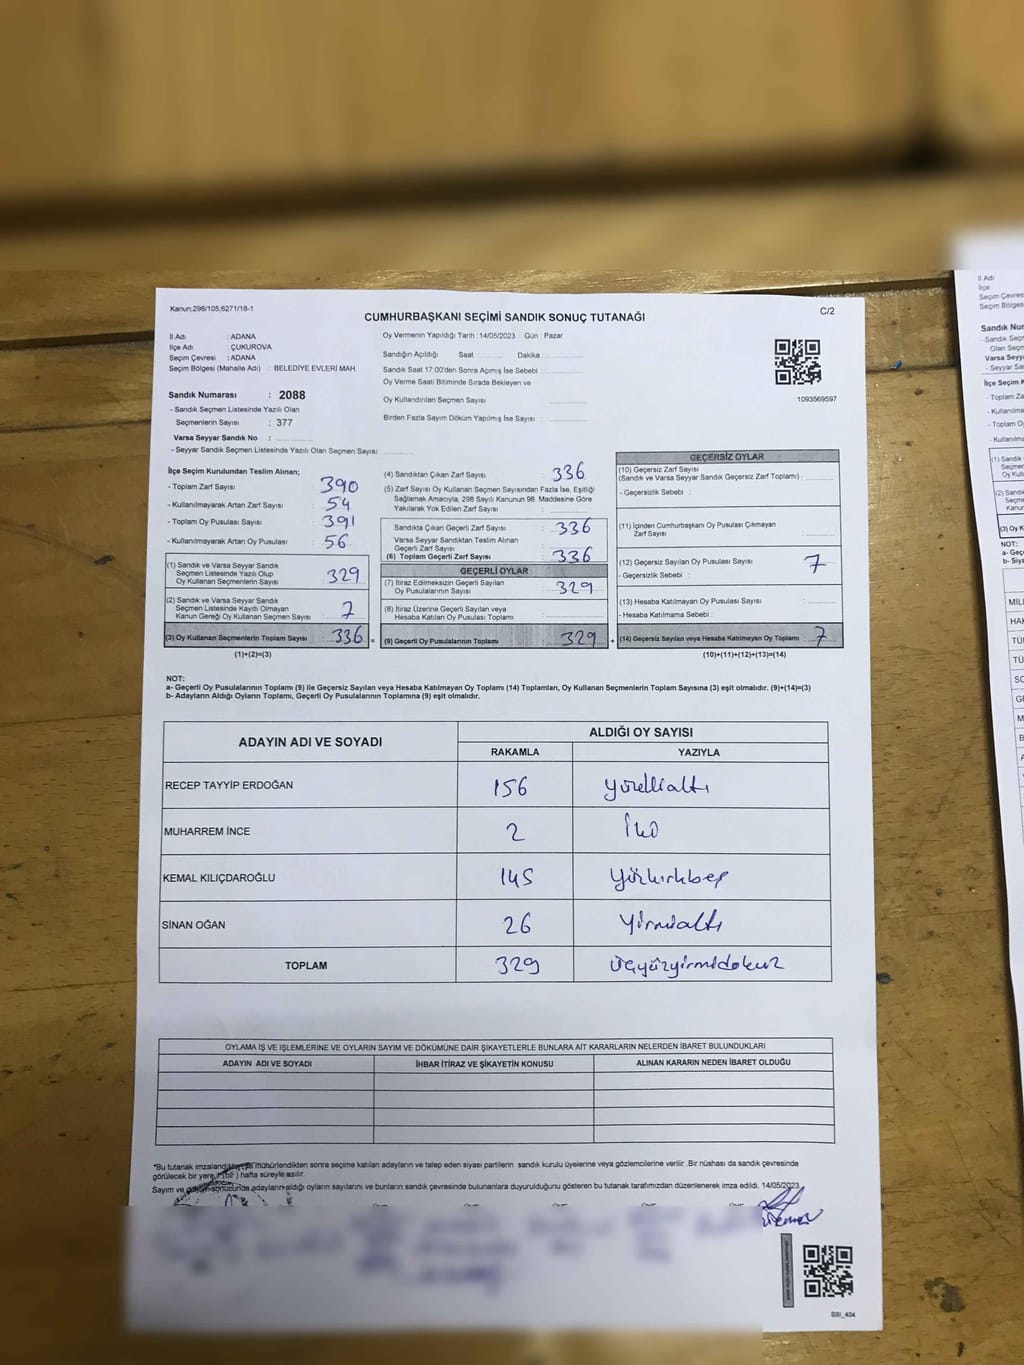 Kanun;298/105;6271/18-1
CUMHURBAŞKANI SEÇİMİ SANDIK SONUÇ TUTANAĞI
C/2
İl Adı : ADANA
İlçe Adı : ÇUKUROVA
Seçim Çevresi : ADANA
Seçim Bölgesi (Mahalle Adı) : BELEDİYE EVLERİ MAH.
Sandık Numarası : 2088
- Sandık Seçmen Listesinde Yazılı Olan
Seçmenlerin Sayısı : 377
Varsa Seyyar Sandık No :
- Seyyar Sandık Seçmen Listesinde Yazılı Olan Seçmen Sayısı:
Oy Vermenin Yapıldığı Tarih :14/05/2023 Gün : Pazar
Sandığın Açıldığı Saat Dakika
Sandık Saat 17:00'den Sonra Açımış İse Sebebi :
Oy Verme Saati Bitiminde Sırada Bekleyen ve
Oy Kullandırılan Seçmen Sayısı
Birden Fazla Sayım Döküm Yapılmış İse Sayısı :
1093569597
İlçe Seçim Kurulundan Teslim Alınan;
- Toplam Zarf Sayısı : 390
- Kullanılmayarak Artan Zarf Sayısı : 54
- Toplam Oy Pusulası Sayısı : 391
- Kullanılmayarak Artan Oy Pusulası : 56
(1) Sandık ve Varsa Seyyar Sandık
Seçmen Listesinde Yazılı Olup
Oy Kullanan Seçmenlerin Sayısı : 329
(2) Sandık ve Varsa Seyyar Sandık
Seçmen Listesinde Kayıtlı Olmayan
Kanun Gereği Oy Kullanan Seçmen Sayısı : 7
(3) Oy Kullanan Seçmenlerin Toplam Sayısı : 336 =
(1)+(2)=(3)
(4) Sandıktan Çıkan Zarf Sayısı : 336
(5) Zarf Sayısı Oy Kullanan Seçmen Sayısından Fazla İse, Eşitliği
Sağlamak Amacıyla; 298 Sayılı Kanunun 98. Maddesine Göre
Yakılarak Yok Edilen Zarf Sayısı :
Sandıkta Çıkan Geçerli Zarf Sayısı : 336
Varsa Seyyar Sandıktan Teslim Alınan
Geçerli Zarf Sayısı :
(6) Toplam Geçerli Zarf Sayısı : 336
GEÇERLİ OYLAR
(7) İtiraz Edilmeksizin Geçerli Sayılan
Oy Pusulalarının Sayısı : 329
(8) İtiraz Üzerine Geçerli Sayılan veya
Hesaba Katılan Oy Pusulası Toplamı :
(9) Geçerli Oy Pusulalarının Toplamı : 329 +
GEÇERSİZ OYLAR
(10) Geçersiz Zarf Sayısı
(Sandık ve Varsa Seyyar Sandık Geçersiz Zarf Toplamı) :
- Geçersizlik Sebebi :
(11) İçinden Cumhurbaşkanı Oy Pusulası Çıkmayan
Zarf Sayısı :
(12) Geçersiz Sayılan Oy Pusulası Sayısı : 7
- Geçersizlik Sebebi :
(13) Hesaba Katılmayan Oy Pusulası Sayısı :
- Hesaba Katılmama Sebebi :
(14) Geçersiz Sayılan veya Hesaba Katılmayan Oy Toplamı : 7
(10)+(11)+(12)+(13)=(14)
NOT:
a- Geçerli Oy Pusulalarının Toplamı (9) ile Geçersiz Sayılan veya Hesaba Katılmayan Oy Toplamı (14) Toplamları, Oy Kullanan Seçmenlerin Toplam Sayısına (3) eşit olmalıdır. (9)+(14)=(3)
b- Adayların Aldığı Oyların Toplamı, Geçerli Oy Pusulalarının Toplamına (9) eşit olmalıdır.
ADAYIN ADI VE SOYADI ALDIĞI OY SAYISI
RAKAMLA YAZIYLA
RECEP TAYYİP ERDOĞAN 156 yüzellialtı
MUHARREM İNCE 2 İki
KEMAL KILIÇDAROĞLU 145 yüzkırkbeş
SİNAN OĞAN 26 yirmialtı
TOPLAM 329 üçyüzyirmidokuz
OYLAMA İŞ VE İŞLEMLERİNE VE OYLARIN SAYIM VE DÖKÜMÜNE DAİR ŞİKAYETLERLE BUNLARA AİT KARARLARIN NELERDEN İBARET BULUNDUKLARI
ADAYIN ADI VE SOYADI İHBAR İTİRAZ VE ŞİKAYETİN KONUSU ALINAN KARARIN NEDEN İBARET OLDUĞU
*Bu tutanak imzalandıktan ve mühürlendikten sonra seçime katılan adayların ve talep eden siyasi partilerin sandık kurulu üyelerine veya gözlemcilerine verilir .Bir nüshası da sandık çevresinde
görülecek bir yere 1 (bir ) hafta süreyle asılır.
Sayım ve döküm sonucunda adayların aldığı oyların sayılarını ve bunların sandık çevresinde bulunanlara duyurulduğunu gösteren bu tutanak tarafımızdan düzenlenerek imza edildi. 14/05/2023
SSI_404
İl Adı
İlçe
Seçim Çevres
Seçim Bölges
Sandık Nu
- Sandık Seçm
Olan Seçm
Varsa Seyya
- Seyyar San
İlçe Seçim K
- Toplam Za
- Kullanılma
- Toplam O
- Kullanılm
NOT:
a- Geç
b- Ada